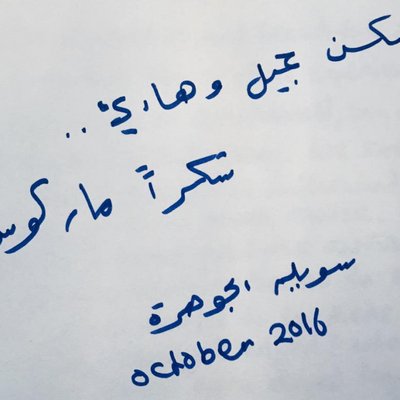 سكن جميل وهادئ..
شكراً ماركوس
الجوهرة
october 2016